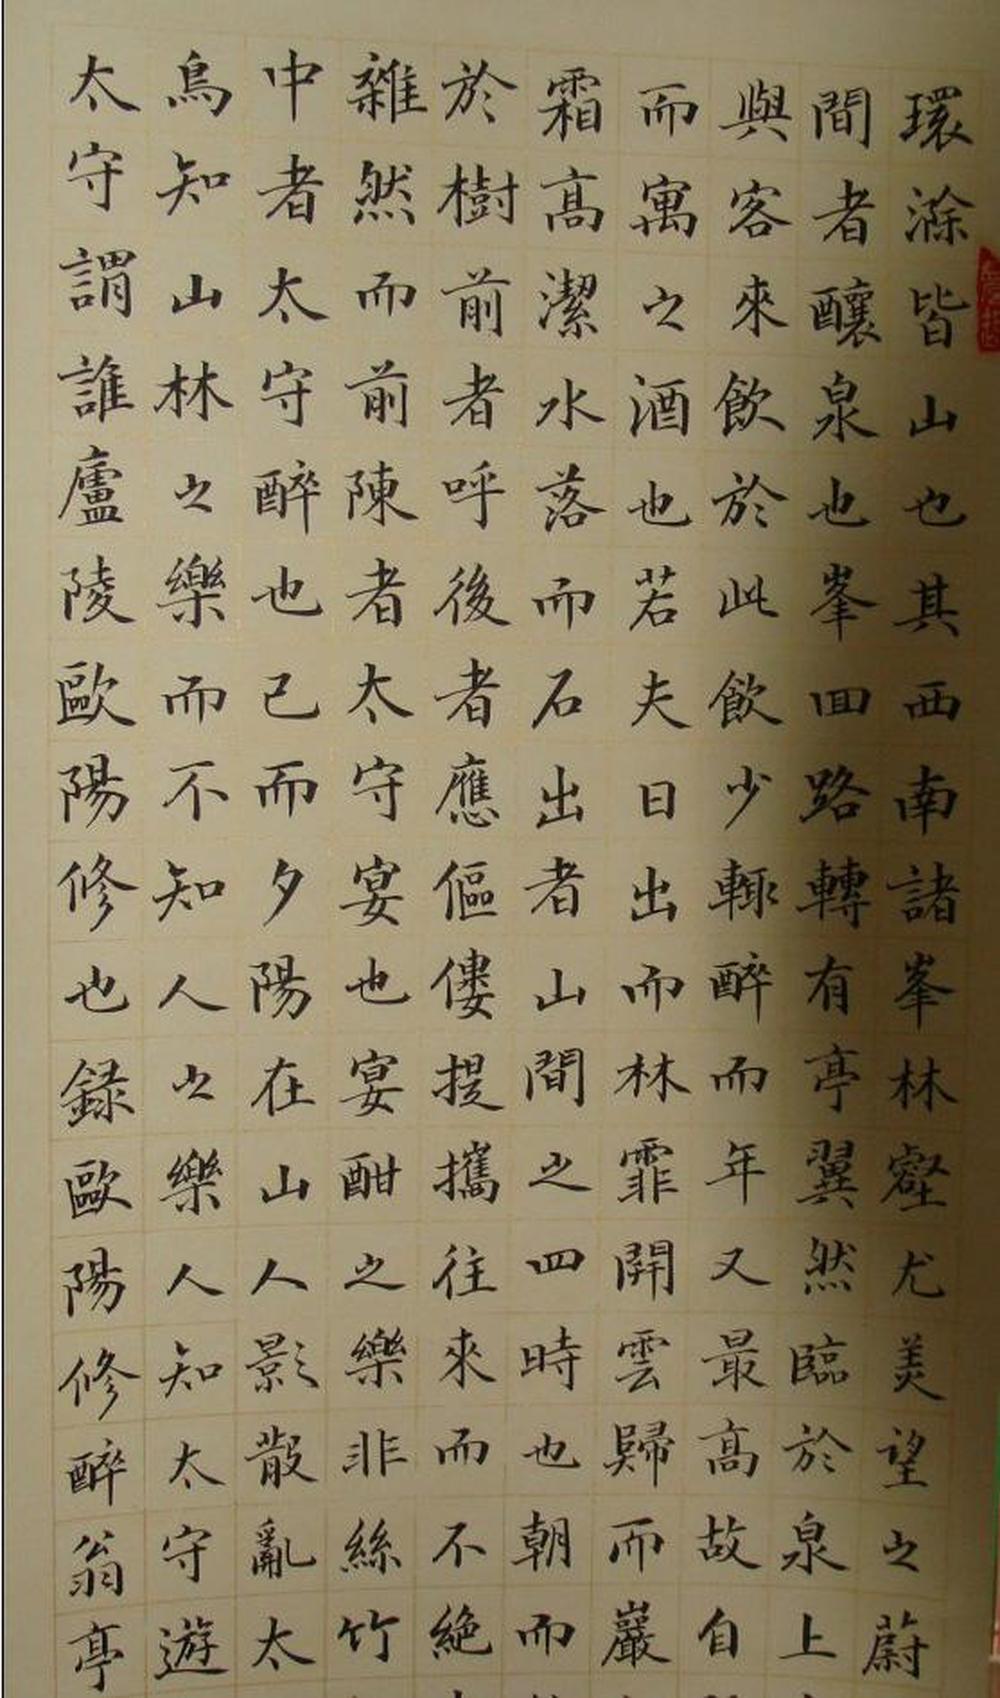 環滁皆山也其西南諸峯林壑尤美望之蔚
間者釀泉也峯回路轉有亭翼然臨於泉上
與客來飲於此飲少輒醉而年又最高故自
而寓之酒也若夫日出而林霏開雲歸而巖
霜高潔水落而石出者山間之四時也朝而
於樹前者呼後者應傴僂提攜往來而不絶
雜然而前陳者太守宴也宴酣之樂非絲竹
中者太守醉也已而夕陽在山人影散亂太
鳥知山林之樂而不知人之樂人知太守遊
太守謂誰廬陵歐陽修也録歐陽修醉翁亭